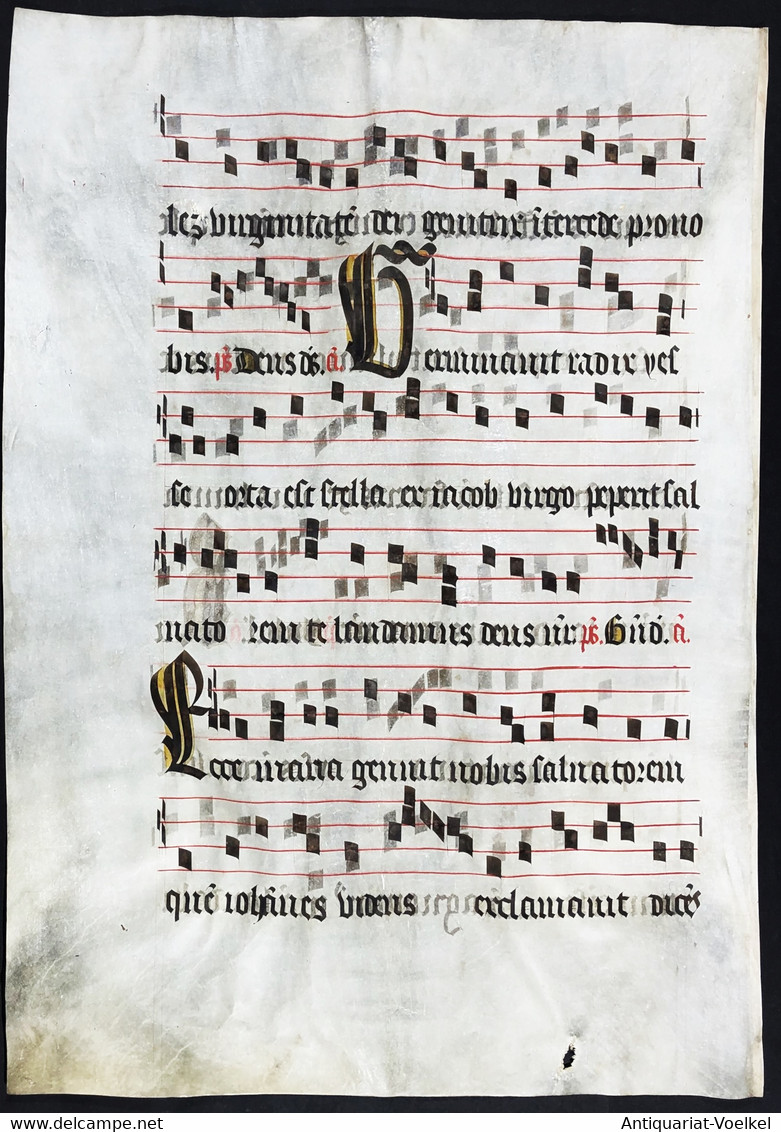 bilez virginitatē dei genitrix ītercede pro no
bis. ps̄. Deus dn̄s. ā. Germinavit radix yes
se orta est stella ex iacob virgo peperit sal
vato rem te laudamus deus nr̄. ps̄. ā.
Ecce maria genuit nobis salvatorem
quē iohānes videns exclamavit dicēs
Antiquariat-Voelkel